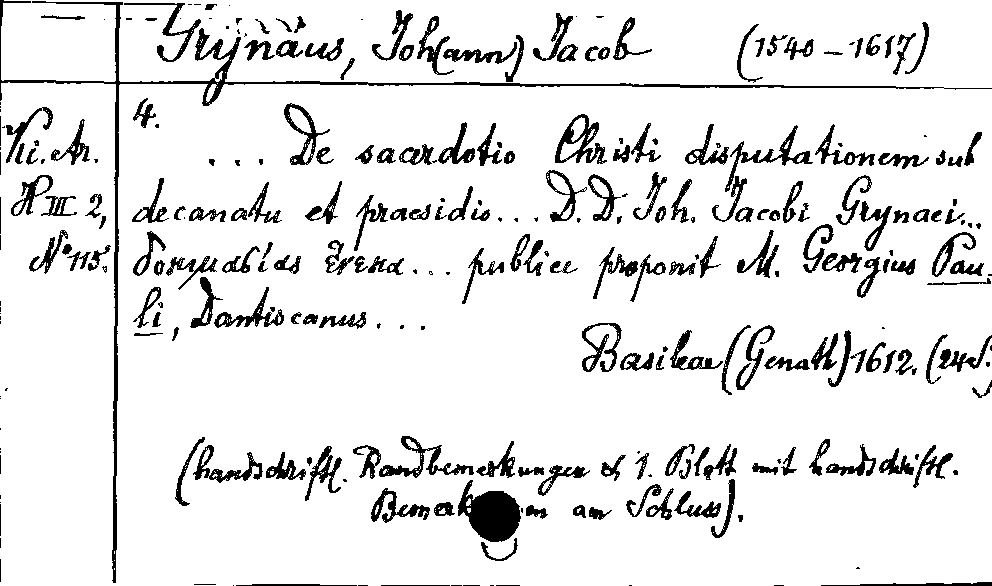 Grynäus, Joh(ann) Jacob (1540–1617)
4.
Ki. Ar.
H III 2,
N° 115.
... De sacerdotio Christi disputationem sub
decanatu et praesidio... D. D. Joh. Jacobi Grynaei...
δοκιμασίας ἕνεκα... publice proponit M. Georgius Pau-
li, Dantiscanus...
Basileae (Genath) 1612. (24 S.)
(handschriftl. Randbemerkungen & 1. Blatt mit handschriftl.
Bemerk en am Schluss).